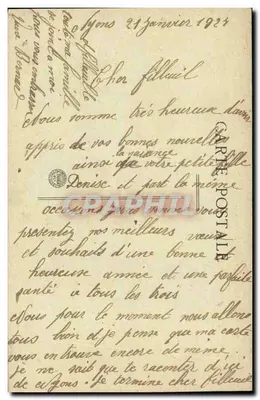 Lyons 21 Janvier 1924
Cher filleuil
Nous somme très heureux d'avoir
appris de vos bonnes nouvelle
la naisance
ainsi que votre petite fille
Denise et part la même
occasion nous vous
presentez nos meilleurs vœux
et souhaits d'une bonne
heureuse année et une parfaite
santé a tous les trois
Nous pour le moment nous allons
tous bien et je pense que ma carte
vous en trouve encore de même
je ne sait que te raconter d'ici
je termine cher filleuil
toute ma famille
se joint a moi
pour vous embrasser
CARTE POSTALE
CPAPHIL